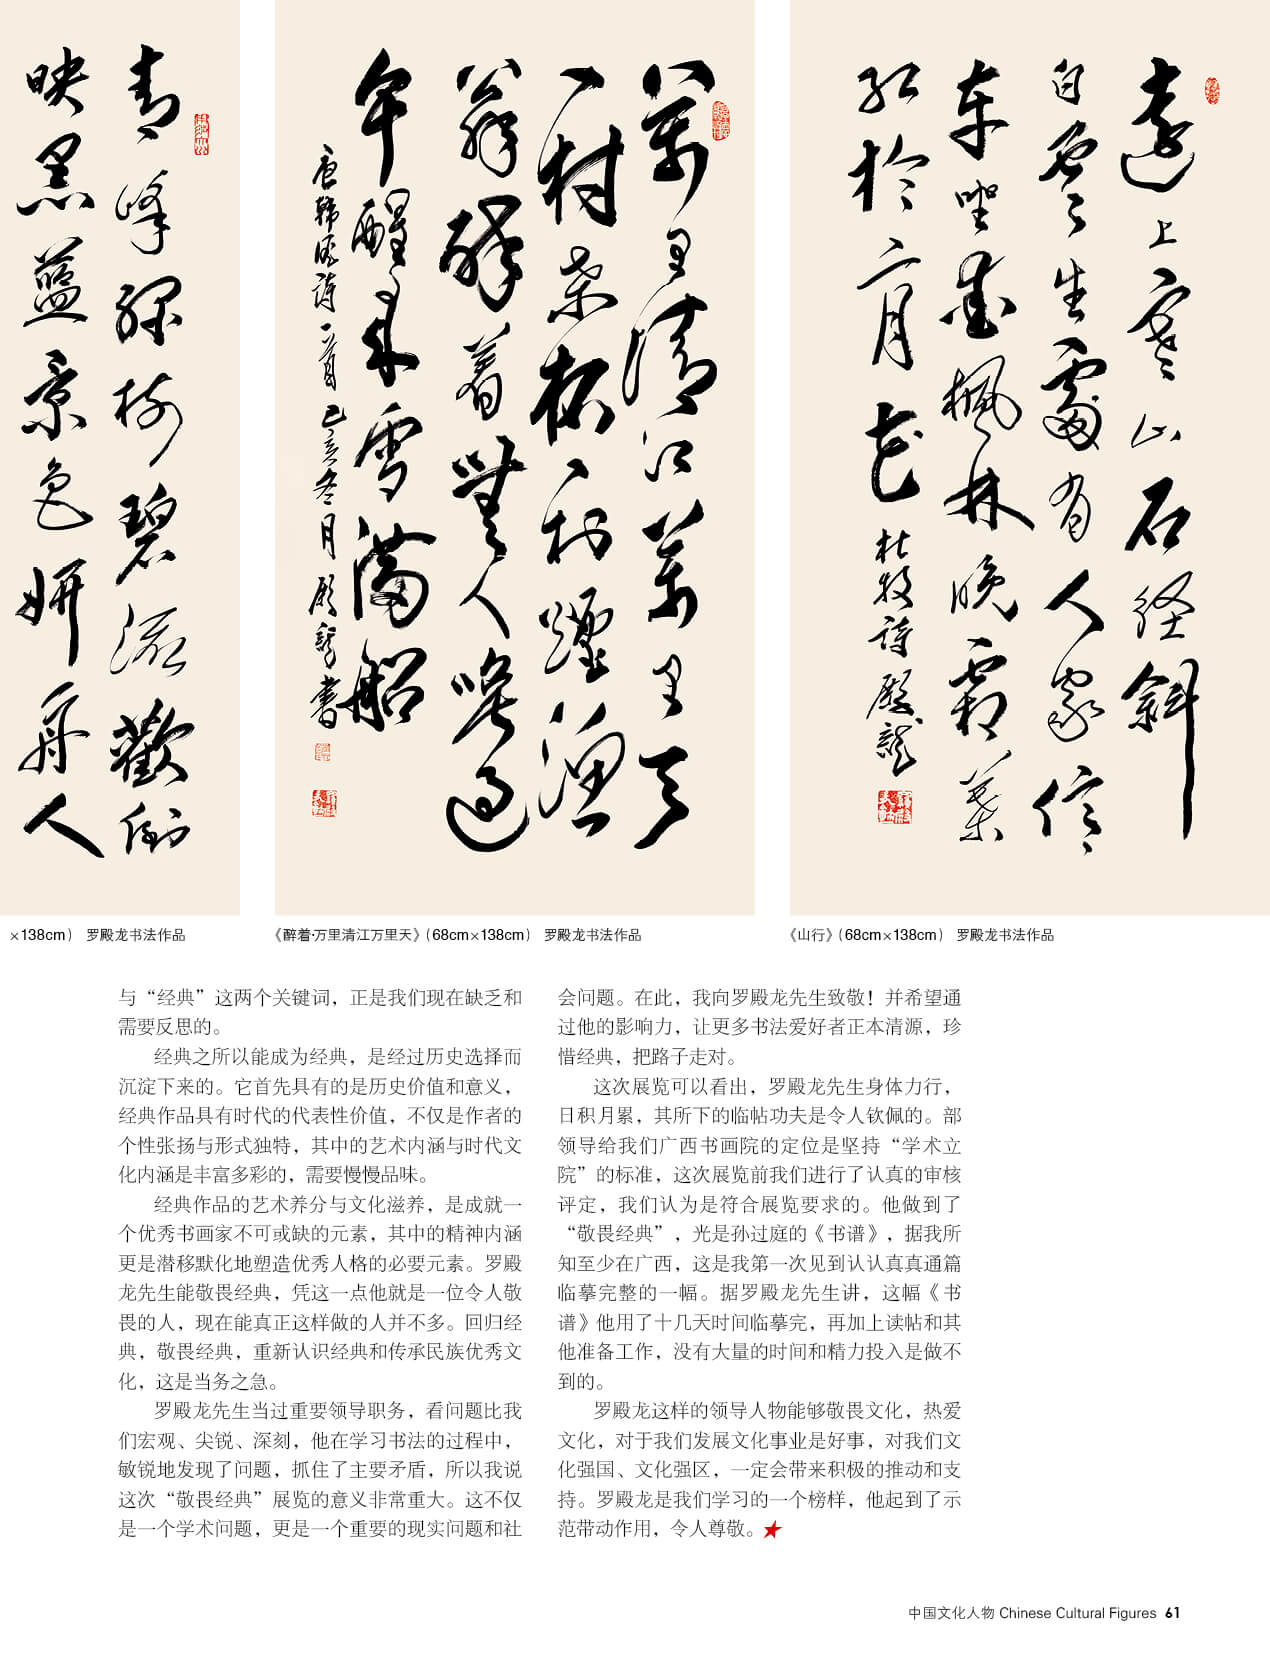 青峰绿树碧流歡倒
映黑藍景色妍舟人
萬里清江萬里天
一村桑柘一村煙漁
翁醉着無人喚過
午醒来雪滿船
唐韩偓詩一首己亥冬月殿龍書
遠上寒山石径斜
白雲生處有人家停
車坐愛楓林晚霜葉
红於二月花 杜牧詩殿龍
×138cm） 罗殿龙书法作品
《醉着·万里清江万里天》（68cm×138cm） 罗殿龙书法作品
《山行》（68cm×138cm） 罗殿龙书法作品
与“经典”这两个关键词，正是我们现在缺乏和
需要反思的。
经典之所以能成为经典，是经过历史选择而
沉淀下来的。它首先具有的是历史价值和意义，
经典作品具有时代的代表性价值，不仅是作者的
个性张扬与形式独特，其中的艺术内涵与时代文
化内涵是丰富多彩的，需要慢慢品味。
经典作品的艺术养分与文化滋养，是成就一
个优秀书画家不可或缺的元素，其中的精神内涵
更是潜移默化地塑造优秀人格的必要元素。罗殿
龙先生能敬畏经典，凭这一点他就是一位令人敬
畏的人，现在能真正这样做的人并不多。回归经
典，敬畏经典，重新认识经典和传承民族优秀文
化，这是当务之急。
罗殿龙先生当过重要领导职务，看问题比我
们宏观、尖锐、深刻，他在学习书法的过程中，
敏锐地发现了问题，抓住了主要矛盾，所以我说
这次“敬畏经典”展览的意义非常重大。这不仅
是一个学术问题，更是一个重要的现实问题和社
会问题。在此，我向罗殿龙先生致敬！并希望通
过他的影响力，让更多书法爱好者正本清源，珍
惜经典，把路子走对。
这次展览可以看出，罗殿龙先生身体力行，
日积月累，其所下的临帖功夫是令人钦佩的。部
领导给我们广西书画院的定位是坚持“学术立
院”的标准，这次展览前我们进行了认真的审核
评定，我们认为是符合展览要求的。他做到了
“敬畏经典”，光是孙过庭的《书谱》，据我所
知至少在广西，这是我第一次见到认认真真通篇
临摹完整的一幅。据罗殿龙先生讲，这幅《书
谱》他用了十几天时间临摹完，再加上读帖和其
他准备工作，没有大量的时间和精力投入是做不
到的。
罗殿龙这样的领导人物能够敬畏文化，热爱
文化，对于我们发展文化事业是好事，对我们文
化强国、文化强区，一定会带来积极的推动和支
持。罗殿龙是我们学习的一个榜样，他起到了示
范带动作用，令人尊敬。★
中国文化人物 Chinese Cultural Figures 61